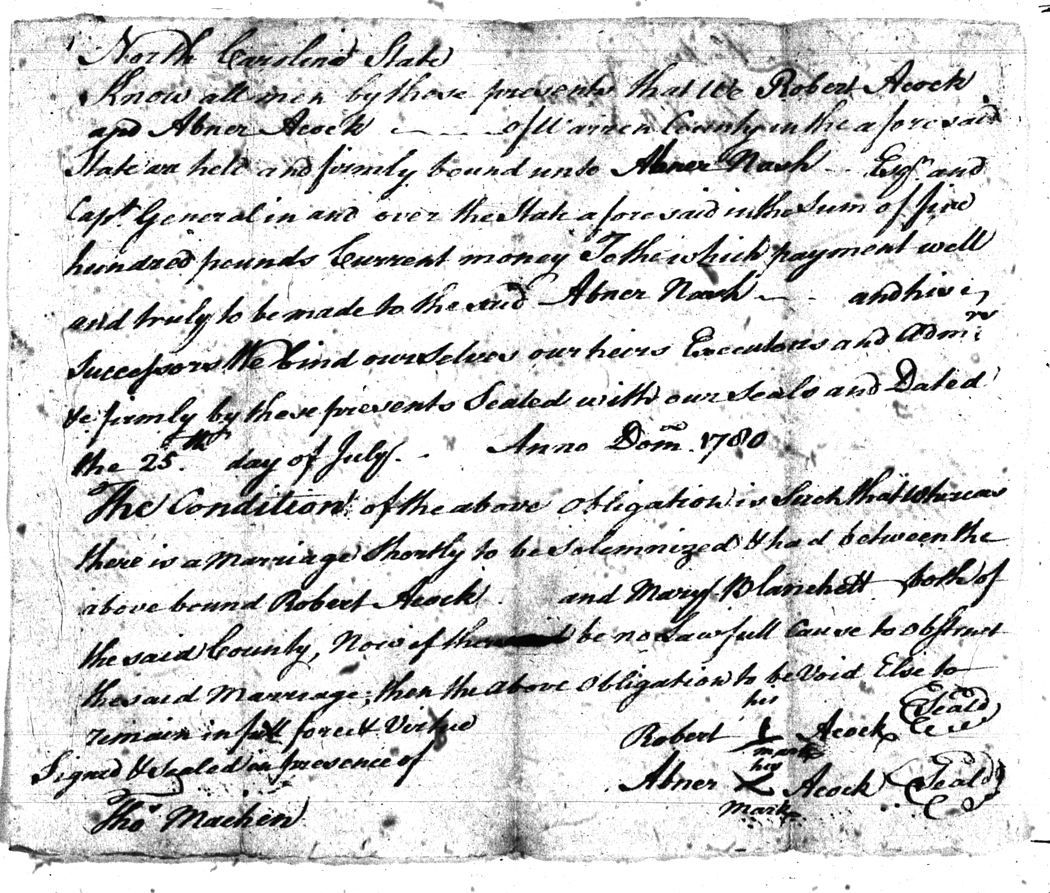 North Carolina State
Know all men by these presents that We Robert Acock
and Abner Acock of Warren County in the aforesaid
State are held and firmly bound unto Abner Nash Esqr. and
Capt. General in and over the State aforesaid in the Sum of five
hundred pounds Current money To the which payment well
and truly to be made to the said Abner Nash and his
Successors We bind ourselves our heirs Executors and Admrs.
&c firmly by these presents Sealed with our Seals and Dated
the 25th. day of July. Anno Dom. 1780
The Condition of the above Obligation is Such that Whereas
there is a Marriage Shortly to be Solemnized & had between the
above bound Robert Acock and Mary Blanchett both of
the said County, Now if there be no Lawfull Cause to obstruct
the said Marriage, then the above Obligation to be Void Else to
remain in full force & Vertue
Signed & Sealed in presence of
Thos. Machen
his
Robert Acock (Seald)
mark
his
Abner X Acock (Seald)
Mark